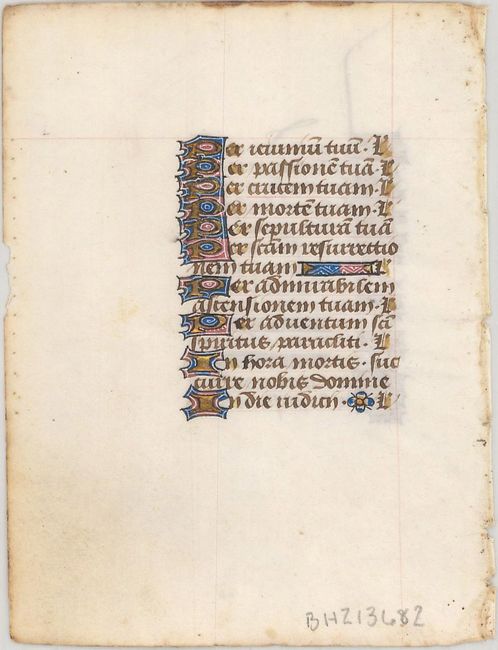 Per ieiuniū tuū · L
Per passionē tuā · L
Per crucem tuam · L
Per mortē tuam · L
Per sepulturā tuā
Per scām resurrectio
nem tuam L
Per admirabilem
ascensionem tuam · L
Per aduentum scī
spiritus paracliti · L
In hora mortis · suc
curre nobis domine
In die iudicii · L
BHZ13682